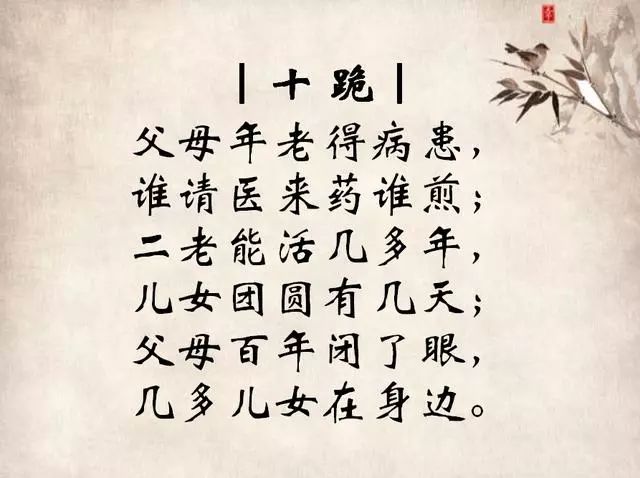 | 十跪 |
父母年老得病患，
谁请医来药谁煎；
二老能活几多年，
儿女团圆有几天；
父母百年闭了眼，
几多儿女在身边。